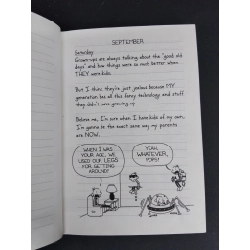 SEPTEMBER
Saturday
Grown-ups are always talking about the "good old
days" and how things were so much better when
THEY were kids.
But I think they're just jealous because MY
generation has all this fancy technology and stuff
they didn't have growing up.
Believe me, I'm sure when I have kids of my own,
I'm gonna be the exact same way my parents
are NOW.
WHEN I WAS
YOUR AGE, WE
USED OUR LEGS
FOR GETTING
AROUND!
YEAH,
WHATEVER,
POPS!